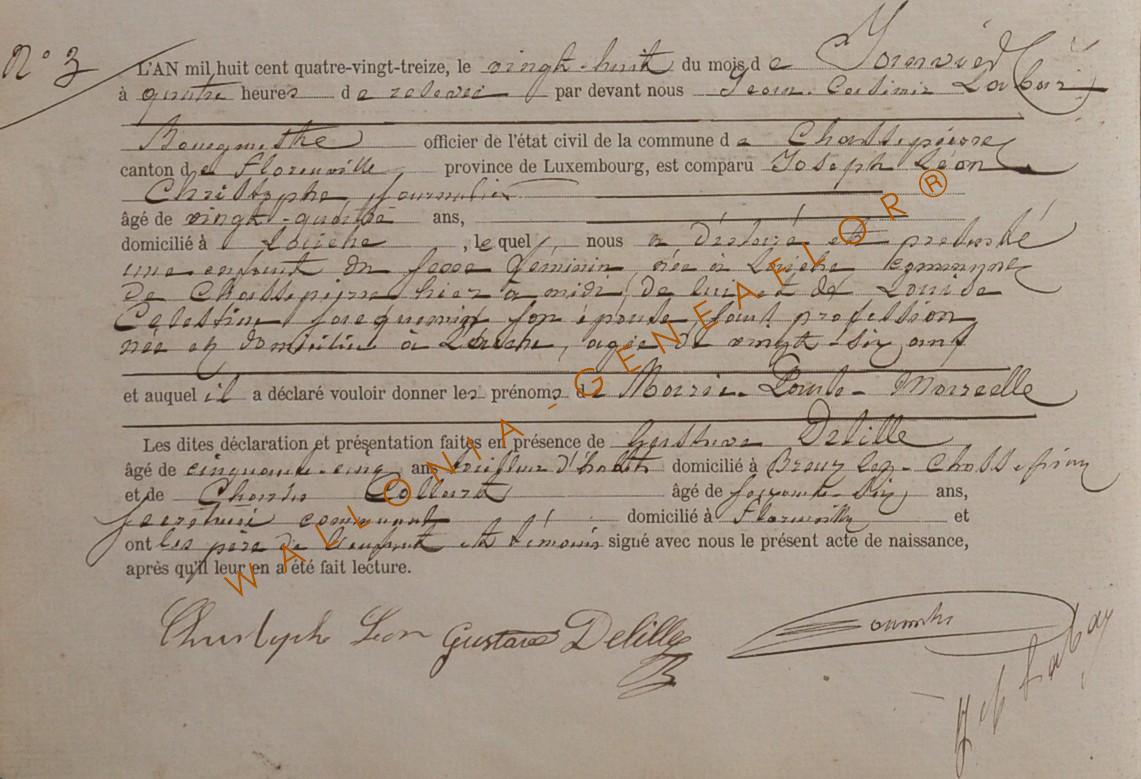 N° 3
L'AN mil huit cent quatre-vingt-treize, le vingt-huit du mois de Janvier
à quatre heures de relevée par devant nous Jean Casimir Labar
Bourgmestre officier de l'état civil de la commune de Chassepierre
canton de Florenville province de Luxembourg, est comparu Joseph Léon
Christophe journalier
âgé de vingt-quatre ans,
domicilié à Laiche, lequel nous a déclaré et présenté
une enfant du sexe féminin, née à Laiche commune
de Chassepierre hier à midi, de lui et de Louise
Célestine Jacquemin son épouse, sans profession
née et domiciliée à Laiche, agée de vingt-six ans
et auquel il a déclaré vouloir donner les prénoms de Marie-Paule-Marcelle
Les dites déclaration et présentation faites en présence de Gustave Delille
âgé de cinquante-cinq ans tailleur d'habits domicilié à Breux lez-Chassepierre
et de Charles Collard âgé de soixante-dix ans,
secrétaire communal domicilié à Florenville et
ont les père de l'enfant et témoins signé avec nous le présent acte de naissance,
après qu'il leur en a été fait lecture.
Christophe Léon Gustave Delille
WALLONIA - GENEAFLOR®